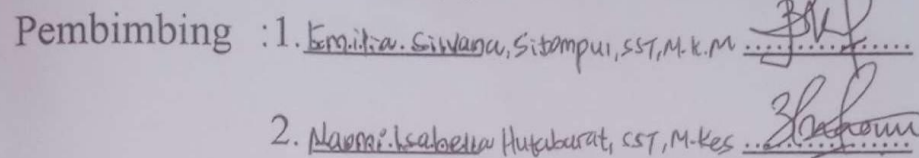 Pembimbing : 1. Emilia. Silvana, Sitompul, SST, M.K.M
2. Naomi. Isabella Hutabarat, SST, M.Kes